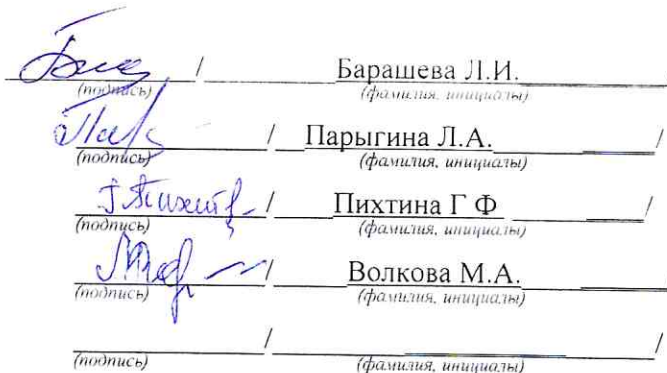 / Барашева Л.И.
(подпись) (фамилия, инициалы)
/ Парыгина Л.А. /
(подпись) (фамилия, инициалы)
/ Пихтина Г Ф /
(подпись) (фамилия, инициалы)
/ Волкова М.А.
(подпись) (фамилия, инициалы)
/ /
(подпись) (фамилия, инициалы)